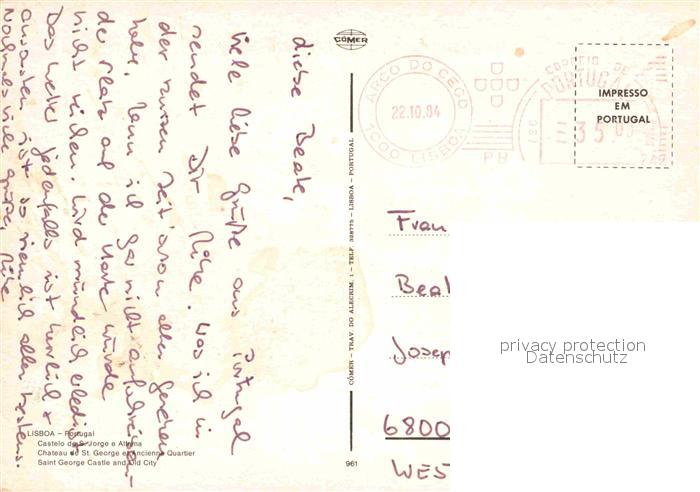 CÓMER
Liebe Beate,
viele liebe Grüße aus Portugal
sendet Dir Rike. Was ich in
der kurzen Zeit schon alles gesehen
habe, kann ich gar nicht aufschreiben –
der Platz auf der Karte würde
nicht reichen. Wird mündlich erledigt.
Das Wetter jedenfalls ist herrlich &
ansonsten ist so ziemlich alles bestens.
Nochmals viele Grüße, Rike
LISBOA – Portugal
Castelo de S. Jorge e Alfama
Chateau de St. George et Ancienne Quartier
Saint George Castle and Old City
CÓMER – TRAV. DO ALECRIM, 1 – TELF. 328775 – LISBOA – PORTUGAL
961
ARCO DO CEGO
22.10.84
1000 LISBOA
PB
CORREIO DE
PORTUGAL
35
IMPRESSO
EM
PORTUGAL
Frau
Beat
Josep
6800
WES
privacy protection
Datenschutz